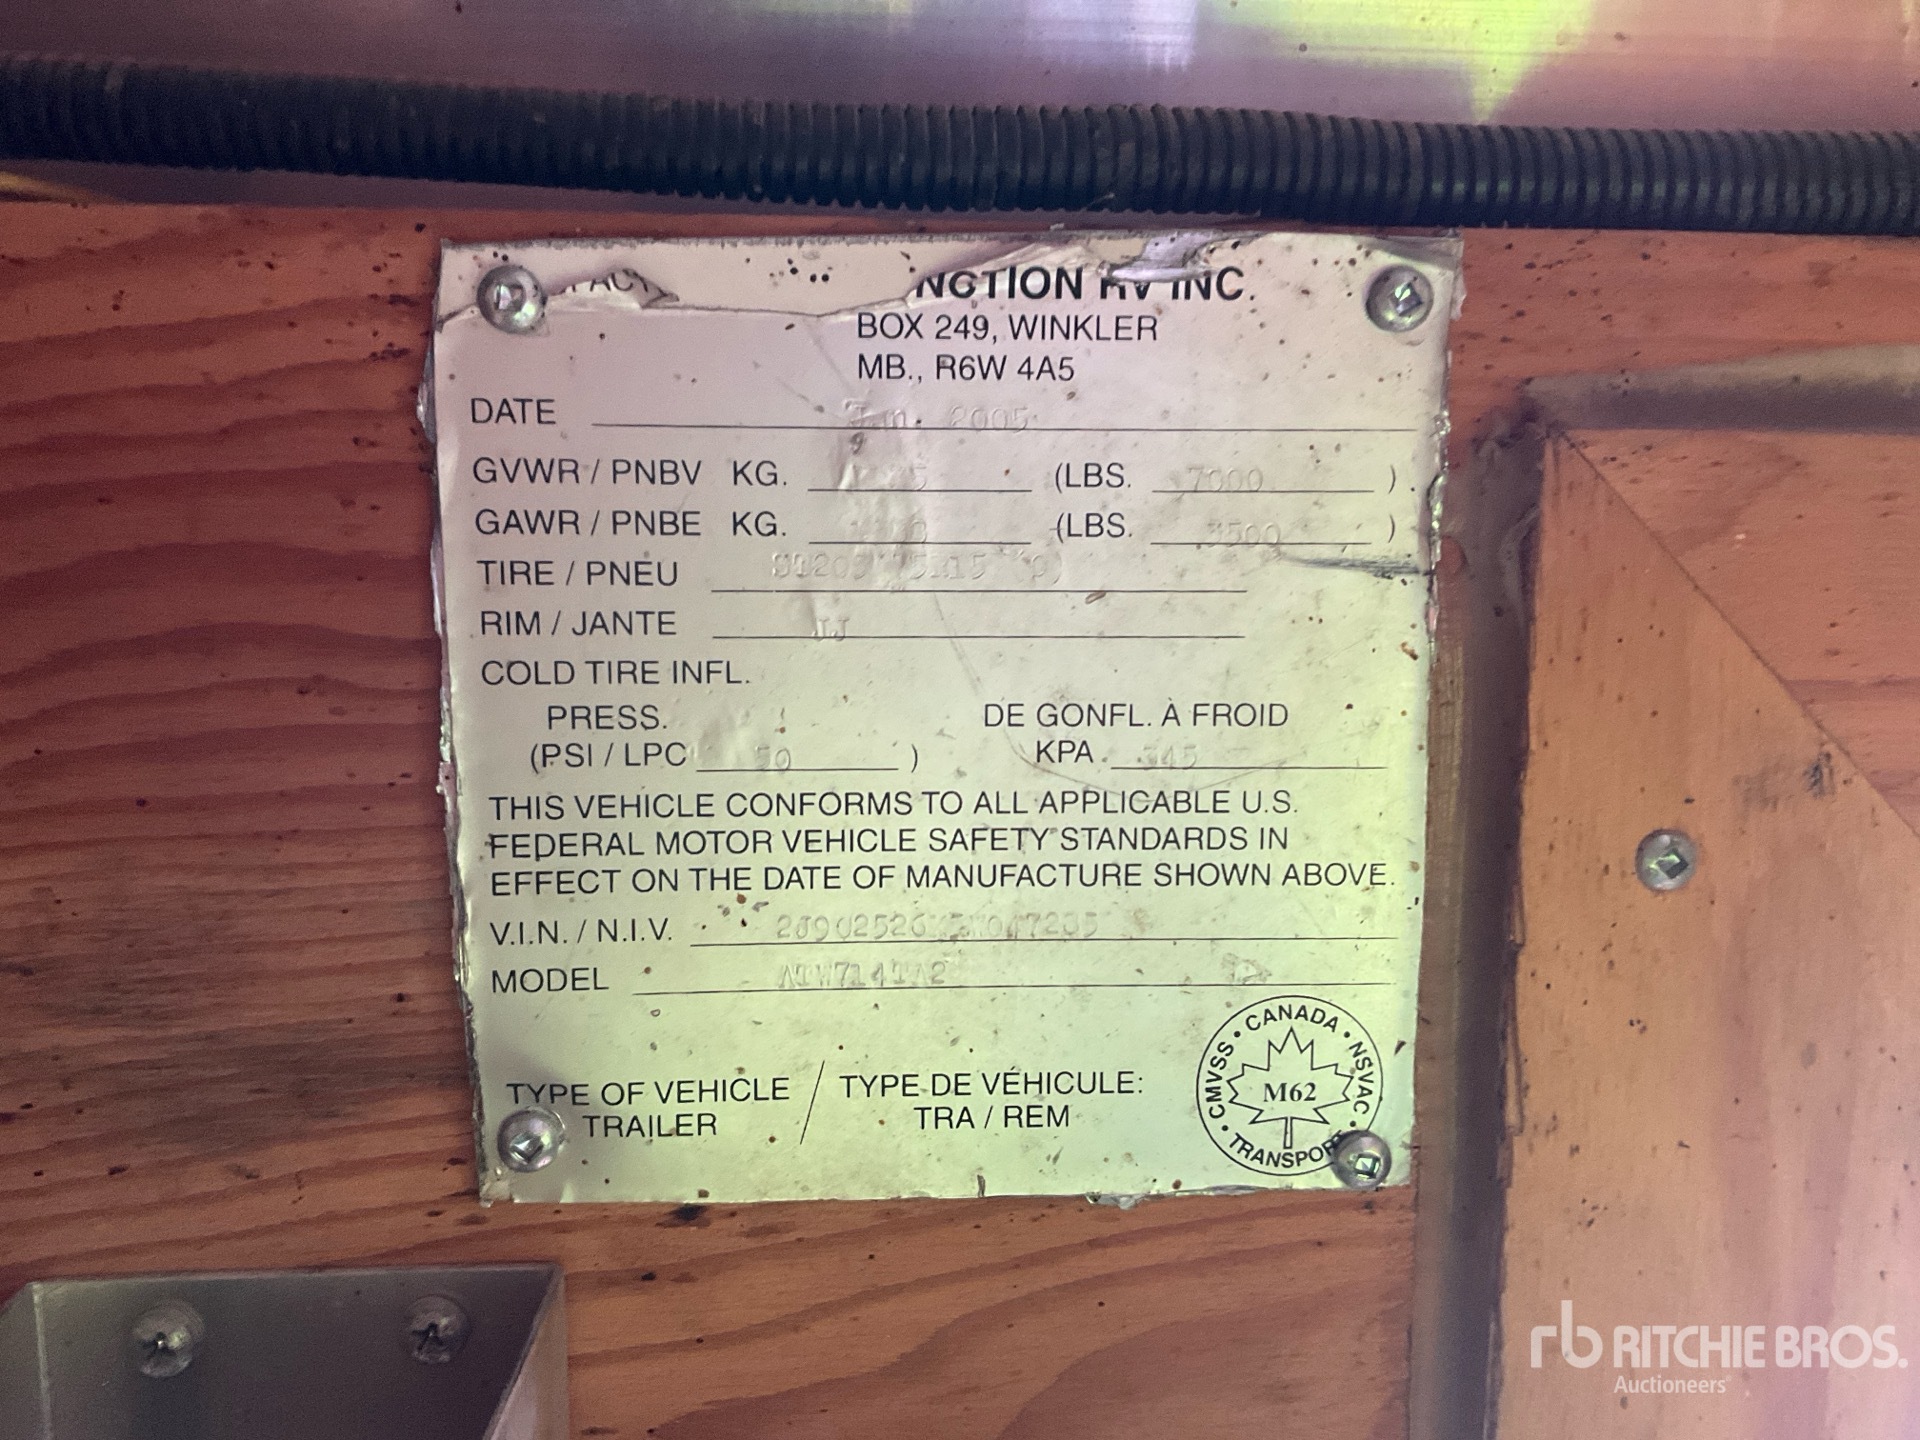 NCTION RV INC.
BOX 249, WINKLER
MB., R6W 4A5
DATE 2005
GVWR / PNBV KG. (LBS. 7000 ).
GAWR / PNBE KG. (LBS. 3500 )
TIRE / PNEU
RIM / JANTE JJ
COLD TIRE INFL.
PRESS. DE GONFL. À FROID
(PSI / LPC 50 ) KPA 345
THIS VEHICLE CONFORMS TO ALL APPLICABLE U.S.
FEDERAL MOTOR VEHICLE SAFETY STANDARDS IN
EFFECT ON THE DATE OF MANUFACTURE SHOWN ABOVE.
V.I.N. / N.I.V.
MODEL ATW714TA2
TYPE OF VEHICLE / TYPE DE VÉHICULE:
TRAILER TRA / REM
CANADA • NSVAC • TRANSPORT • CMVSS •
M62
rb RITCHIE BROS.
Auctioneers